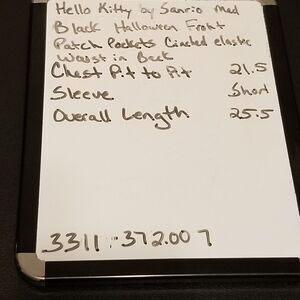 Hello Kitty by Sanrio Med
Black Halloween Front
Patch Pockets Cinched elastic
Waist in Back
Chest Pit to Pit 21.5
Sleeve Short
Overall Length 25.5
3311 372.007